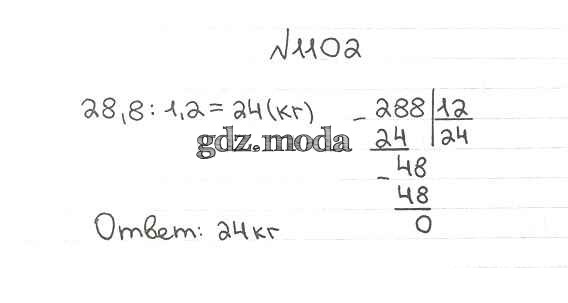 №1102
28,8 : 1,2 = 24 (кг)
gdz.moda
- 288 | 12
24 | 24
- 48
48
0
Ответ: 24 кг